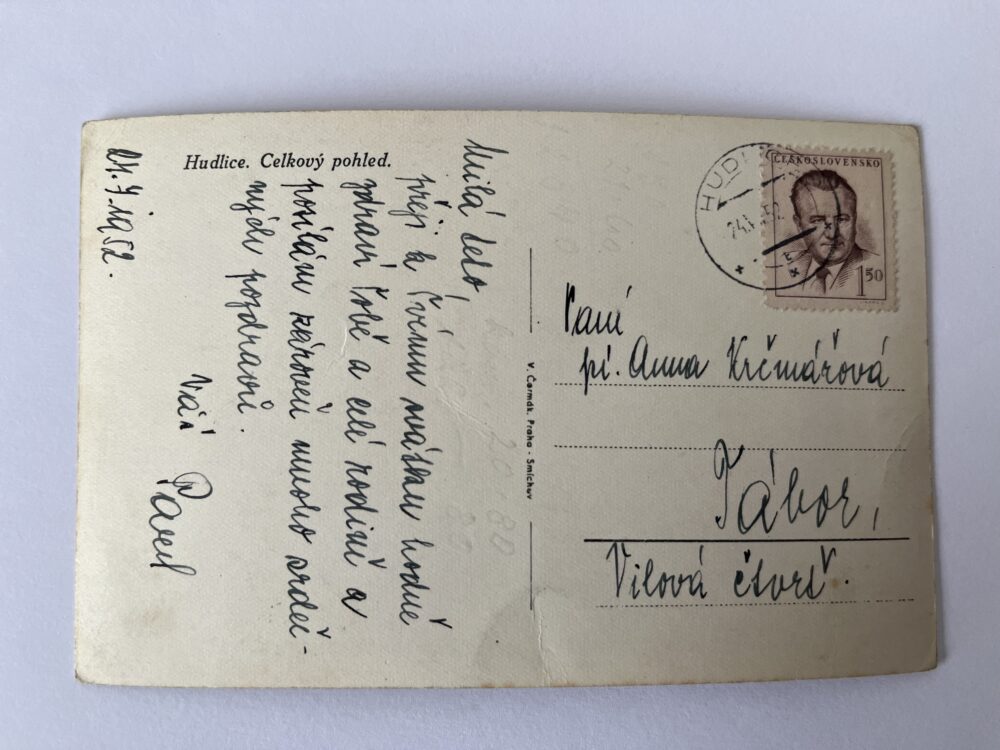 Hudlice. Celkový pohled.
24.7.1952.
Milá teto,
přeji k Tvému svátku hodně
zdraví Tobě a celé rodině a
posílám zároveň mnoho srdeč-
ných pozdravů.
Váš
Pavel
V. Čermák, Praha - Smíchov
HUDLICE
24.
52
ČESKOSLOVENSKO
1 50
Paní
pí. Anna Krčmářová
Tábor,
Vilová čtvrť.